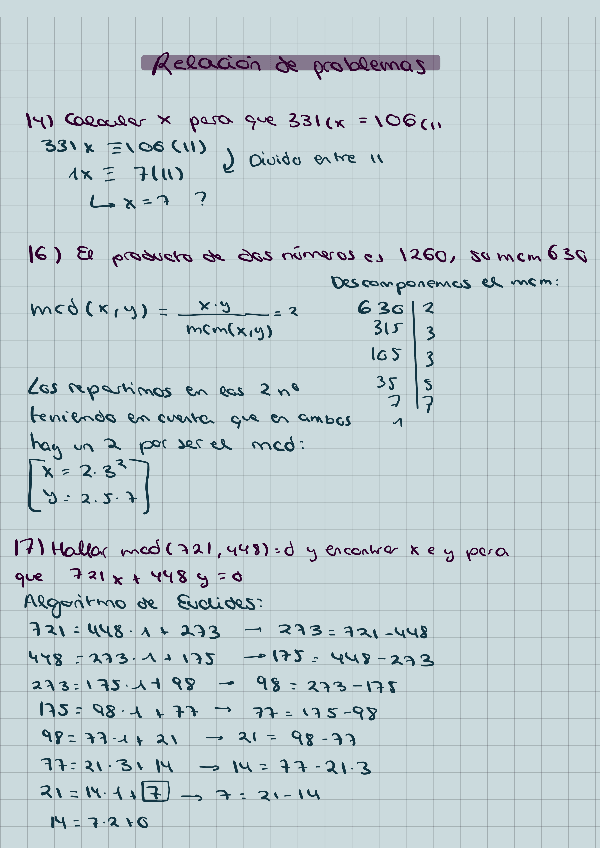 Relación de problemas
14) Calcular x para que 331(x = 106(11
331x ≡ 106(11)
Divido entre 11
1x ≡ 7(11)
↳ x = 7 ?
16) El producto de dos números es 1260, su mcm 630
Descomponemos el mcm:
mcd(x,y) = x·y / mcm(x,y) = 2
630 | 2
315 | 3
105 | 3
35 | 5
7 | 7
1
Los repartimos en los 2 nº
teniendo en cuenta que en ambos
hay un 2 por ser el mcd:
x = 2·3²
y = 2·5·7
17) Hallar mcd(721,448)=d y encontrar x e y para
que 721x + 448y = d
Algoritmo de Euclides:
721 = 448·1 + 273 → 273 = 721-448
448 = 273·1 + 175 → 175 = 448-273
273 = 175·1 + 98 → 98 = 273-175
175 = 98·1 + 77 → 77 = 175-98
98 = 77·1 + 21 → 21 = 98-77
77 = 21·3 + 14 → 14 = 77-21·3
21 = 14·1 + 7 → 7 = 21-14
14 = 7·2+0